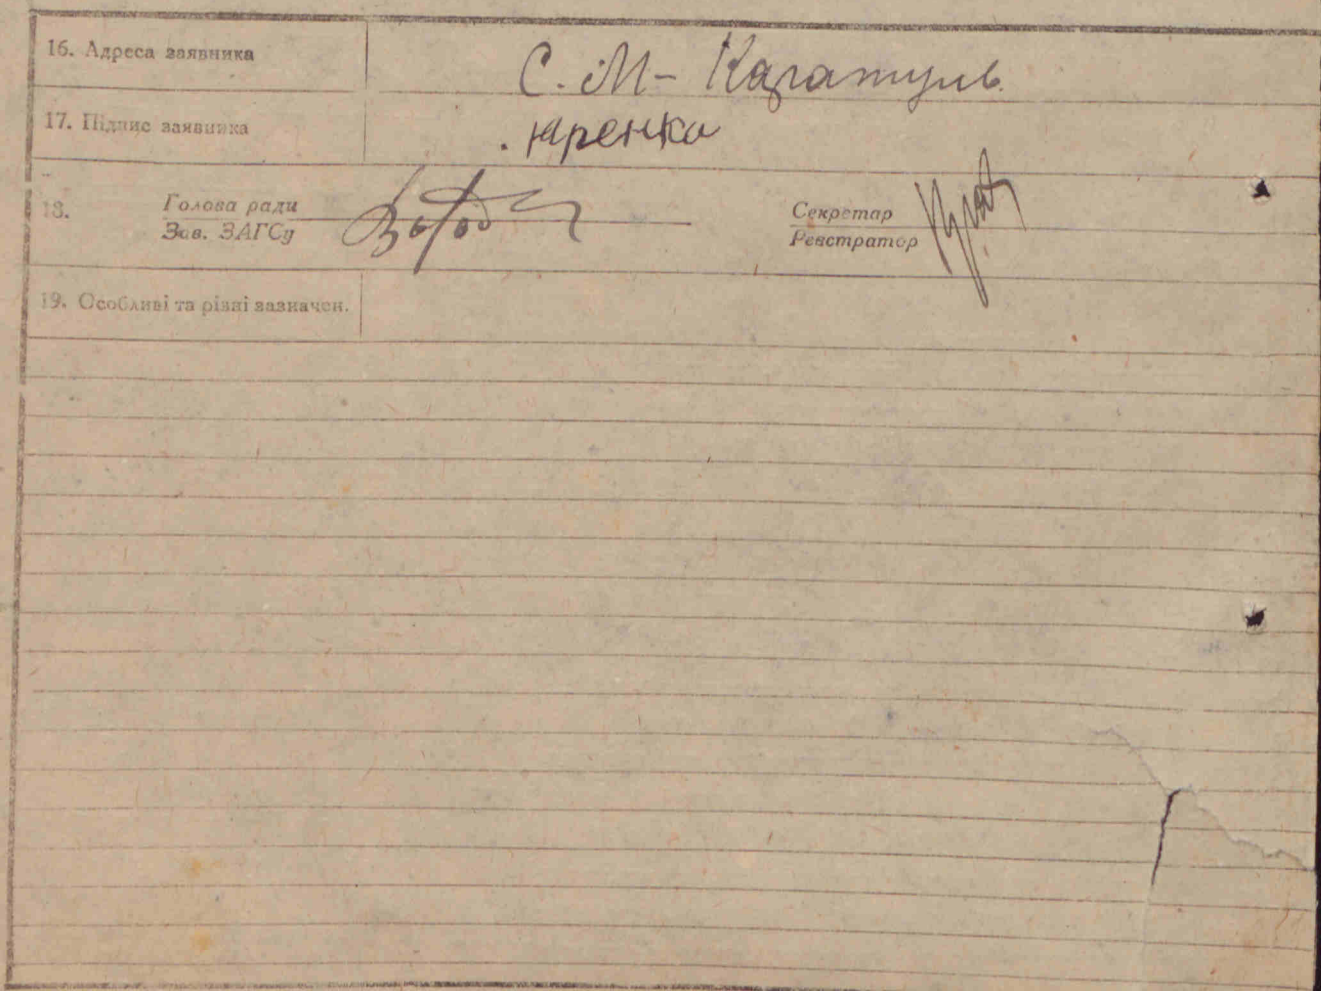 16. Адреса заявника С. М-Каратуль
17. Підпис заявника Юренко
18. Голова ради Секретар
Зав. ЗАГСу Реєстратор
19. Особливі та різні зазначен.